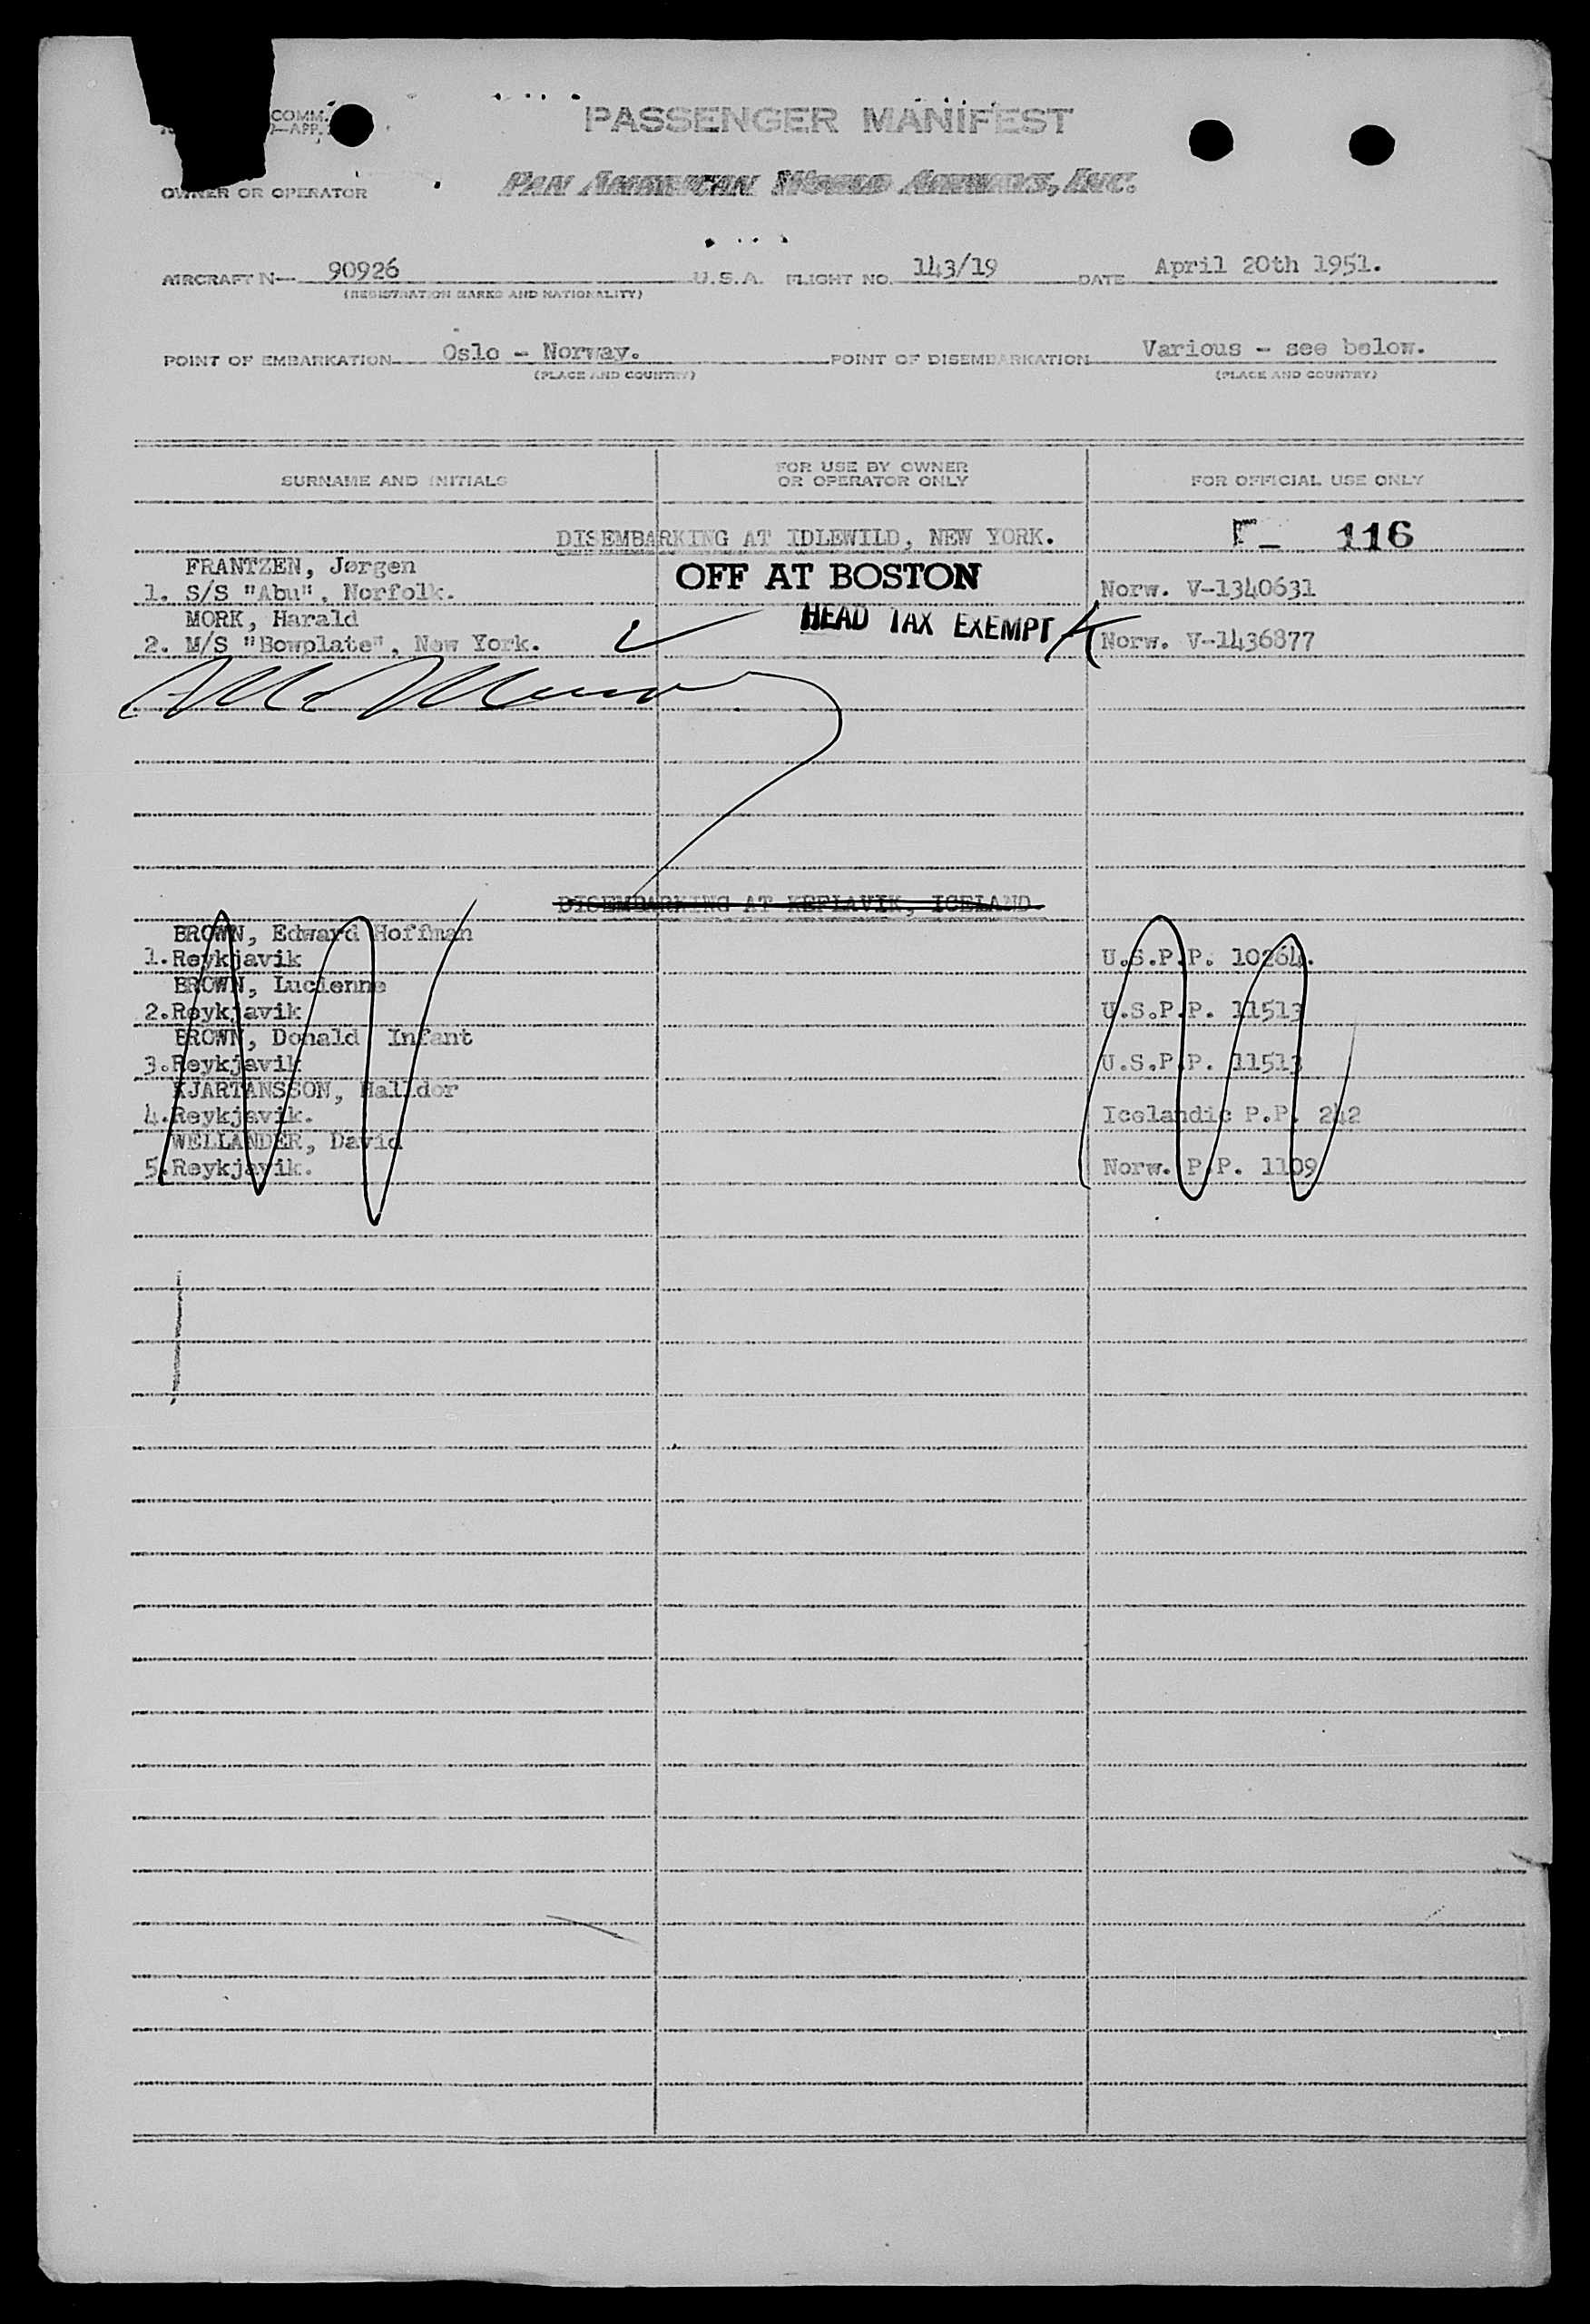 COMM.
—APP.
PASSENGER MANIFEST
OWNER OR OPERATOR
PAN AMERICAN WORLD AIRWAYS, INC.
AIRCRAFT N— 90926 U.S.A. FLIGHT NO. 143/19 DATE April 20th 1951.
(REGISTRATION MARKS AND NATIONALITY)
POINT OF EMBARKATION Oslo - Norway. POINT OF DISEMBARKATION Various - see below.
(PLACE AND COUNTRY) (PLACE AND COUNTRY)
SURNAME AND INITIALS FOR USE BY OWNER OR OPERATOR ONLY FOR OFFICIAL USE ONLY
DISEMBARKING AT IDLEWILD, NEW YORK. F- 116
FRANTZEN, Jørgen OFF AT BOSTON
1. S/S "Abu", Norfolk. Norw. V-1340631
MORK, Harald HEAD TAX EXEMPT
2. M/S "Bowplate", New York. Norw. V-1436877
DISEMBARKING AT KEFLAVIK, ICELAND
BROWN, Edward Hoffman
1.Reykjavik U.S.P.P. 10264.
BROWN, Lucienne
2.Reykjavik U.S.P.P. 11513
BROWN, Donald Infant
3.Reykjavik U.S.P.P. 11513
KJARTANSSON, Halldor
4.Reykjavik. Icelandic P.P. 242
WELLANDER, David
5.Reykjavik. Norw. P.P. 1109